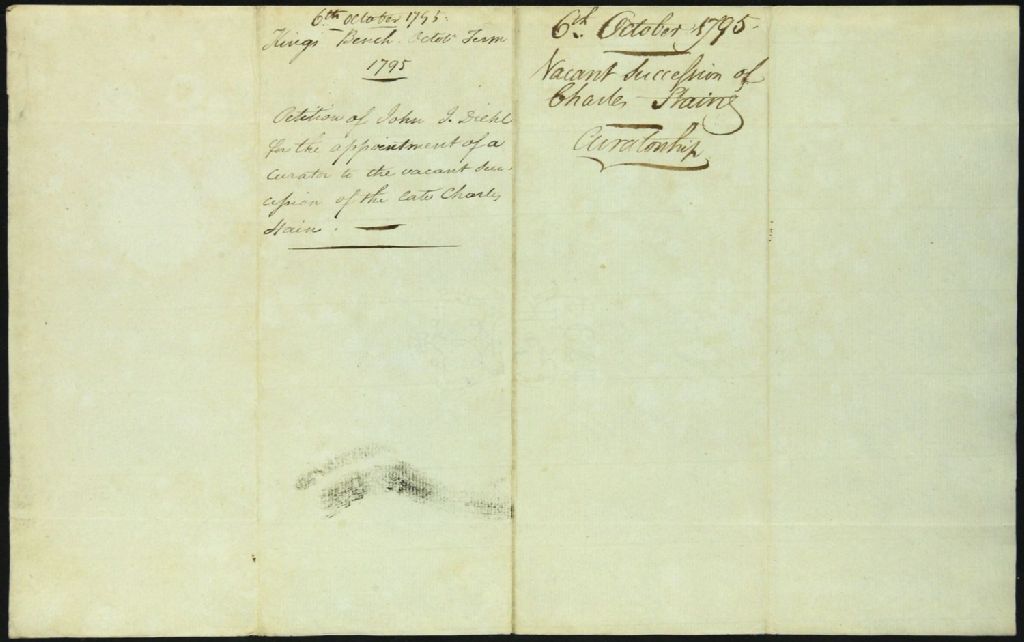 6th October 1795.
Kings Bench Octob. Term
1795
Petition of John J. Diehl
for the appointment of a
Curator to the vacant suc-
cession of the late Charles
Stain.
6th. October 1795.
Vacant Succession of
Charles Staine
Curatorship